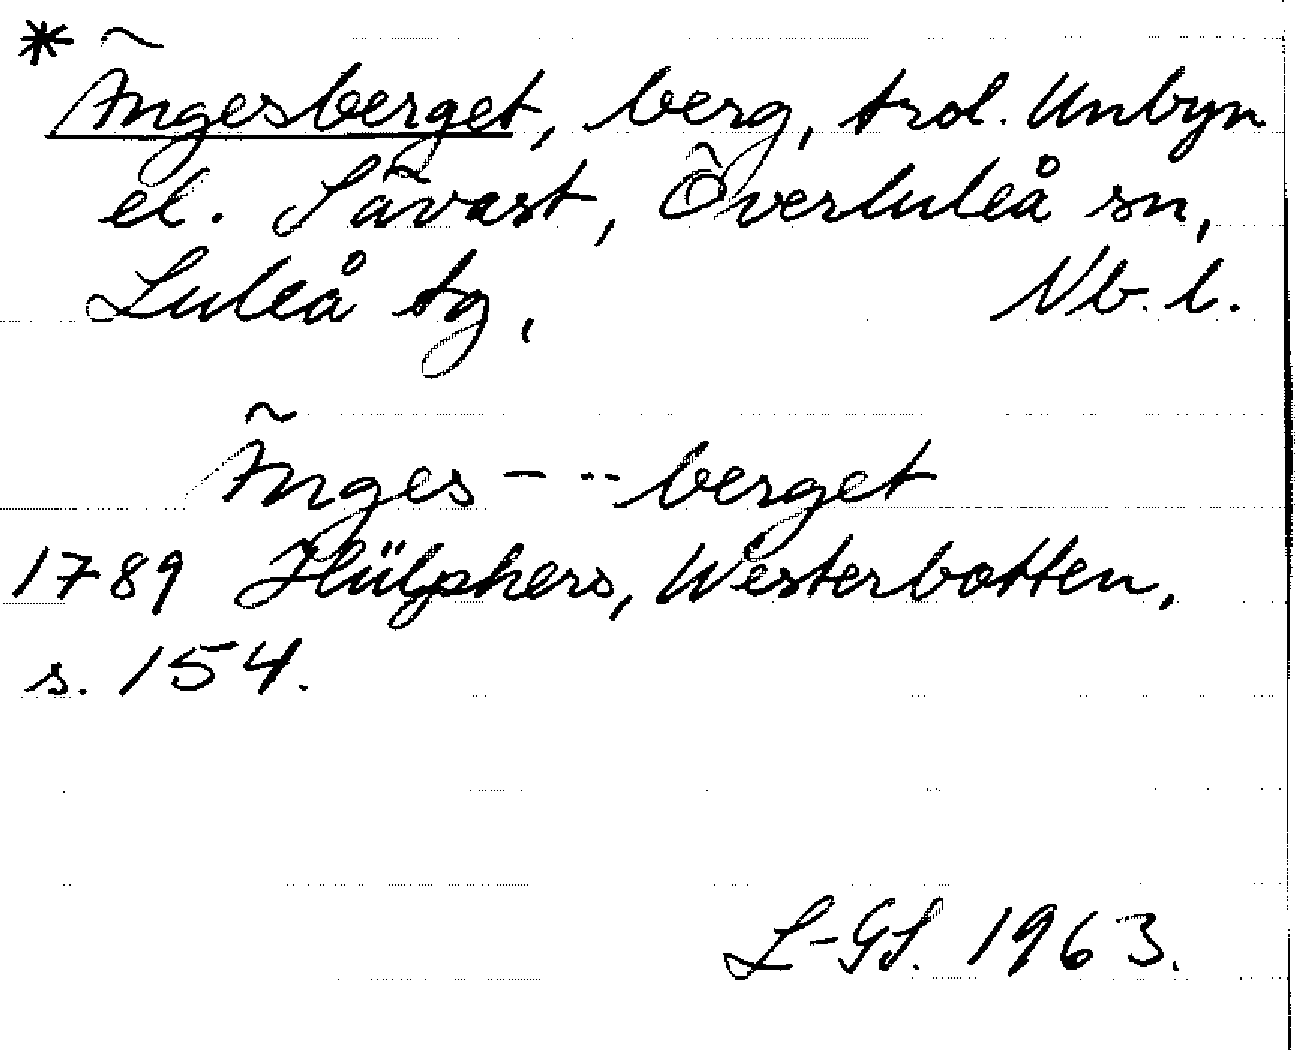 * Ängesberget, berg, trol. Unbyn
el. Sävast, Överluleå sn,
Luleå tg, Nb. l.
Änges - -- berget
1789 Hülphers, Westerbotten,
s. 154.
L-GS. 1963.